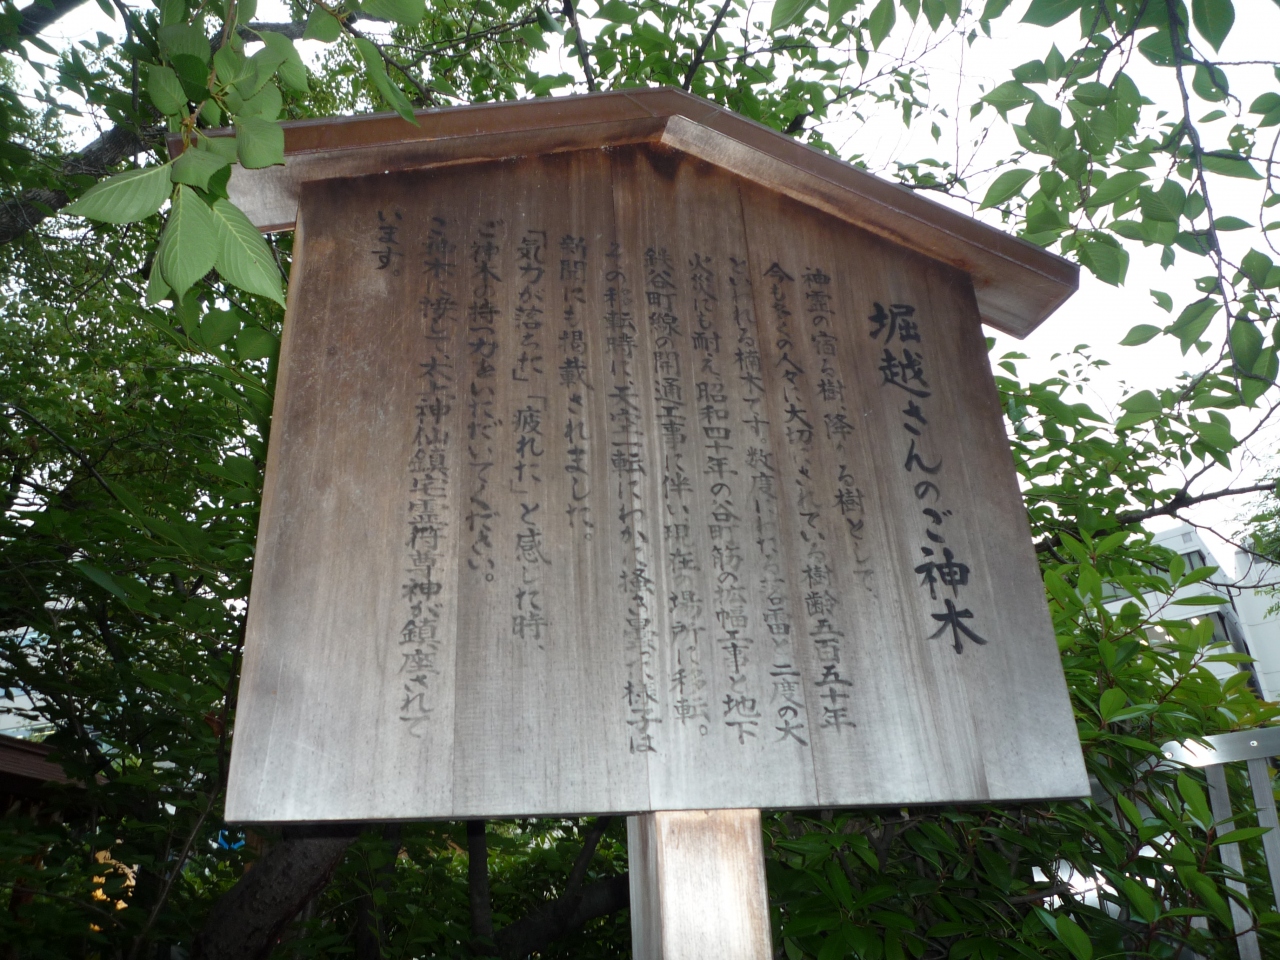 堀越さんのご神木
神霊の宿る樹 降臨する樹として、
今も多くの人々に大切にされている樹齢五百五十年
といわれる楠木です。数度にわたる落雷と二度の大
火災にも耐え昭和四十年の谷町筋の拡幅工事と地下
鉄谷町線の開通工事に伴い現在の場所に移転。
その移転時に天空一転にわかに掻き曇った様子は
新聞にも掲載されました。
「気力が落ちた」「疲れた」と感じた時、
ご神木の持つ力をいただいてください。
ご神木に接して、太上神仙鎮宅霊符尊神が鎮座されて
います。